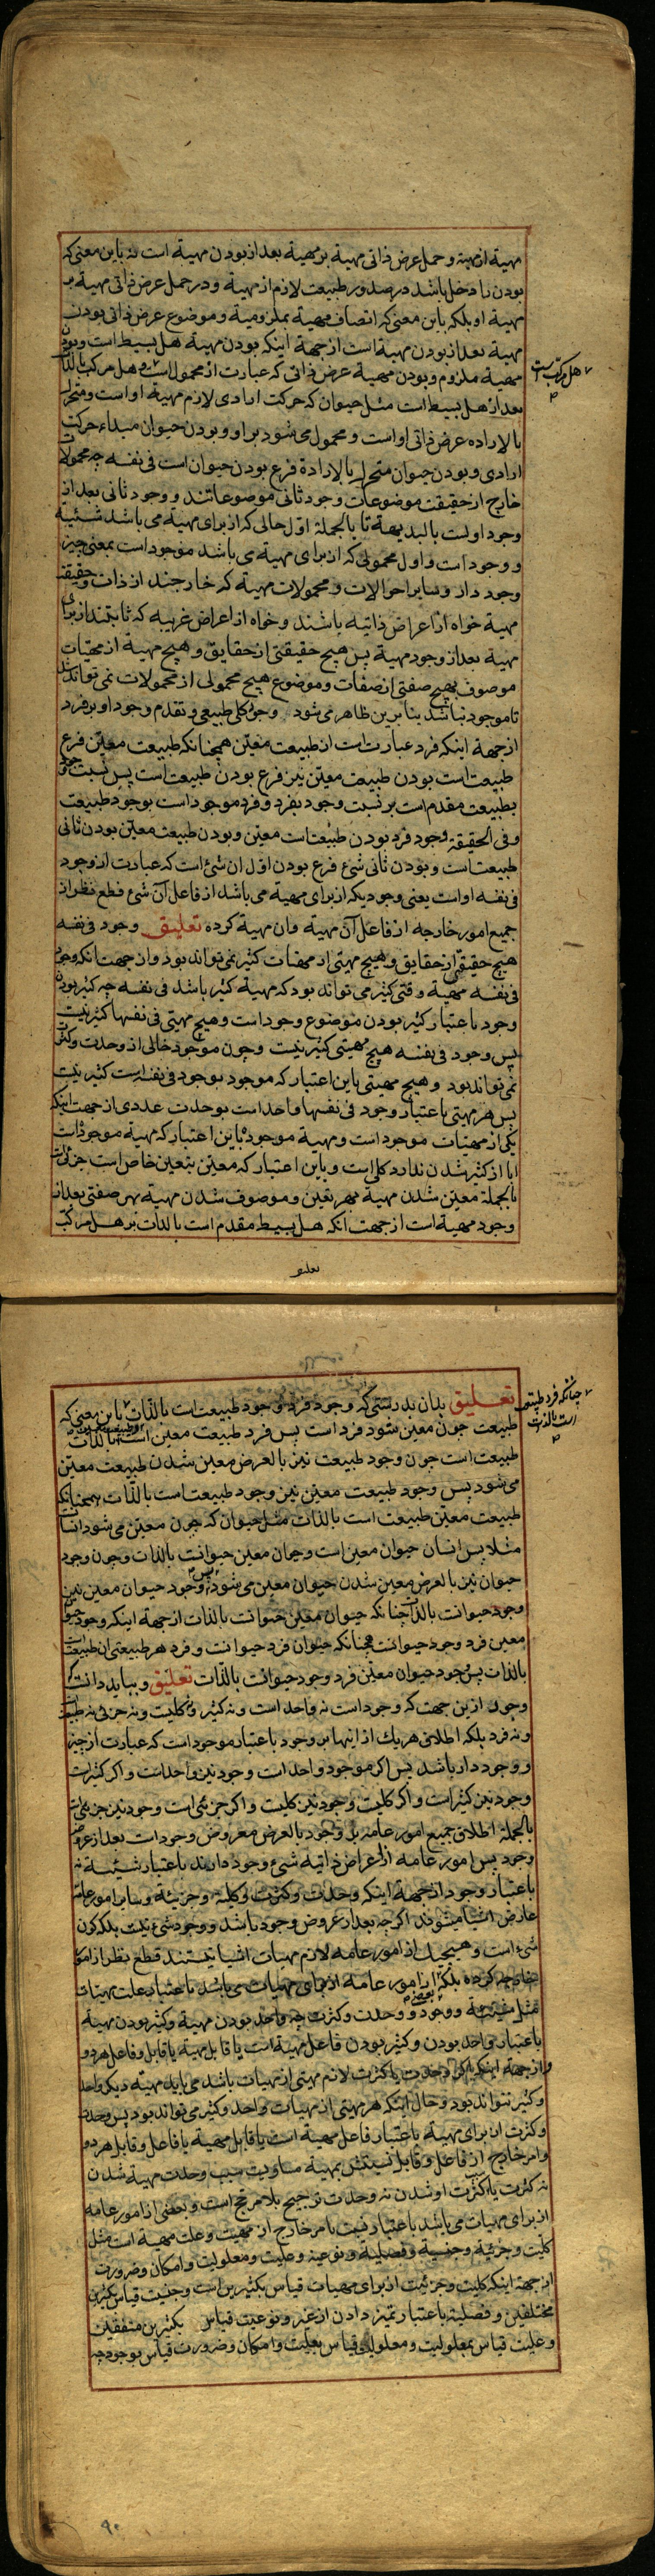 مهیة از مهیة و حمل عرض ذاتی مهیة بر مهیة بعد از بودن مهیة است نه باین معنی که
بودن را دخل باشد در صدور طبیعت لازم از مهیة و در حمل عرض ذاتی مهیة بر
مهیة او بلکه باین معنی که اتصاف مهیة بملزومیة و موضوع عرض ذاتی بودن
مهیة بعد از بودن مهیة است از جهة اینکه بودن مهیة هل بسیط است و بودن
مهیة ملزوم و بودن مهیة عرض ذاتی که عبارت از محمول است و هل مرکب بالذات
هل مرکب است
بعد از هل بسیط است مثل حیوان که حرکت ارادی لازم مهیة او است و متحرک
بالاراده عرض ذاتی او است و محمول می شود بر او و بودن حیوان مبداء حرکت
ارادی و بودن حیوان متحرک بالارادة فرع بودن حیوان است فی نفسه چه محمولات
خارج از حقیقت موضوعات وجود ثانی موضوعاتند و وجود ثانی بعد از
وجود اولست بالبدیهة تا بالجملة اول حالی که از برای مهیة می باشد شیئیة
و وجود است و اول محمولی که از برای مهیة می باشد موجود است بمعنی چیز
وجود دار و سایر احوالات و محمولات مهیة که خارجند از ذات و حقیقة
مهیة خواه از اعراض ذاتیه باشند و خواه از اعراض غریبه که ثابتند از برای
مهیة بعد از وجود مهیة پس هیچ حقیقتی از حقایق و هیچ مهیة از مهیّات
موصوف بهیچ صفتی از صفات و موضوع هیچ محمولی از محمولات نمی تواند شد
تا موجود نباشد بنابرین ظاهر می شود وجود کلی طبیعی و تقدم وجود او بر فرد
از جهة اینکه فرد عبارت است از طبیعت معیّن همچنانکه طبیعت معیّن فرع
طبیعت است بودن طبیعت معیّن نیز فرع بودن طبیعت است پس نسبت وجود
بطبیعت مقدم است بر نسبت وجود بفرد و فرد موجود است بوجود طبیعت
و فی الحقیقة وجود فرد بودن طبیعت است معیّن و بودن طبیعت معیّن بودن ثانی
طبیعت است و بودن ثانی شیء فرع بودن اوّل ان شیء است که عبارت از وجود
فی نفسه او است یعنی وجودیکه از برای مهیة می باشد از فاعل آن شیء قطع نظر از
جمیع امور خارجه از فاعل آن مهیة و ان مهیة کرده تعلیق وجود فی نفسه
هیچ حقیقتی از حقایق و هیچ مهیتی از مهیّات کثیر نمی تواند بود و از جهت انکه وجود
فی نفسه مهیة وقتی کثیر می تواند بود که مهیة کثیر باشد فی نفسه چه کثیر بودن
وجود باعتبار کثیر بودن موضوع وجود است و هیچ مهیتی فی نفسها کثیر نیست
پس وجود فی نفسه هیچ مهیتی کثیر نیست و چون موجود خالی از وحدت و کثرت
نمی تواند بود و هیچ مهیتی باین اعتبار که موجود بوجود فی نفسه است کثیر نیست
پس هر مهیتی باعتبار وجود فی نفسها واحد است بوحدت عددی از جهت اینکه
یکی از مهیّات موجود است و مهیة موجوده باین اعتبار که مهیة موجود است
ابا از کثیر شدن ندارد کلی است و باین اعتبار که معیّن بتعین خاص است جزئیست
بالجملة معیّن شدن مهیة بهر تعین و موصوف شدن مهیة بهر صفتی بعد از
وجود مهیة است از جهت انکه هل بسیط مقدم است بالذات بر هل مرکب
تعلیق
تعلیق بدان بدرستی که وجود فرد وجود طبیعت است بالذّات باین معنی که
چنانکه فرد طبیعت است بالذات
طبیعت چون معین شود فرد است پس فرد طبیعت معین است بالذات
طبیعت است چون وجود طبیعت نیز بالعرض معین شدن طبیعت معیّن
می شود پس وجود طبیعت معیّن نیز وجود طبیعت است بالذّات همچنانکه
طبیعت معیّن طبیعت است بالذات مثل حیوان که چون معیّن می شود انسان
مثلا پس انسان حیوان معین است و حیوان معین حیوانست بالذات و چون وجود
حیوان نیز بالعرض معین شدن حیوان معین می شود پس وجود حیوان معین نیز
وجود حیوانست بالذات چنانکه حیوان معین حیوانست بالذات از جهة اینکه وجود حیوان
معین فرد وجود حیوانست همچنانکه حیوان فرد حیوانست و فرد هر طبیعتی ان طبیعت است
بالذات پس وجود حیوان معیّن فرد وجود حیوانست بالذّات تعلیق و بباید دانست که
وجود ازین جهت که وجود است نه واحد است و نه کثیر و نه کلیست و نه جزئی نه طبیعت
و نه فرد بلکه اطلاق هر یک از اینها بر وجود باعتبار موجود است که عبارت از چیز
و وجود دار باشد پس اکر موجود واحد است وجود نیز واحد است و اکر کثیر است
وجود نیز کثیر است و اکر کلیست وجود نیز کلیست و اکر جزئی است وجود نیز جزئی است
بالجملة اطلاق جمیع امور عامه بر وجود بالعرض معروض وجود است بعد از عروض
وجود پس امور عامه از اعراض ذاتیه شیء وجود دارند باعتبار شیئیة نه
باعتبار وجود از جهة اینکه وحدت و کثرت و کلیة و جزئیة و سایر امور عامه
عارض اشیا میشوند اکر چه بعد از عروض وجود باشد و وجود شیء نیست بلکه کون
شیء است و هیچیک از امور عامه لازم مهیات اشیا نیستند قطع نظر از امور
خارجه کرده بلکه از امور عامه از برای مهیات می باشد باعتبار علت مهیات
مثل شیئیة و وجود و وحدت و کثرت چه واحد بودن مهیة و کثیر بودن مهیة
باعتبار واحد بودن و کثیر بودن فاعل مهیة است یا قابل مهیة یا قابل و فاعل هر دو
و از جهة اینکه اکر وحدت یا کثرت لازم مهیتی از مهیات باشد می باید مهیة دیکر واحد
و کثیر نتواند بود و حال اینکه هر مهیتی از مهیات واحد و کثیر می تواند بود پس وحدت
و کثرت از برای مهیة باعتبار فاعل مهیة است یا قابل مهیة یا فاعل و قابل هر دو
و امر خارج از فاعل و قابل نسبتش بمهیة مساویست سبب وحدت مهیة شدن
نه کثرت یا کثرت او شدن نه وحدت ترجیح بلا مرجح است و بعضی از امور عامه
از برای مهیات می باشد باعتبار نسبت بامر خارج از مهیت و علت مهیة است مثل
کلیت و جزئیة و جنسیة و فصلیة و نوعیة و علیت و معلولیت و امکان و ضرورت
از جهة اینکه کلیت و جزئیت از برای مهیات قیاس بکثیرین است و جنسیت قیاس بکثیرین
مختلفین و فصلیة باعتبار تمیز دادن از غیر و نوعیت قیاس بکثیرین متفقین
و علیت قیاس بمعلولیت و معلولیت قیاس بعلیت و امکان و ضرورت قیاس بوجود چه